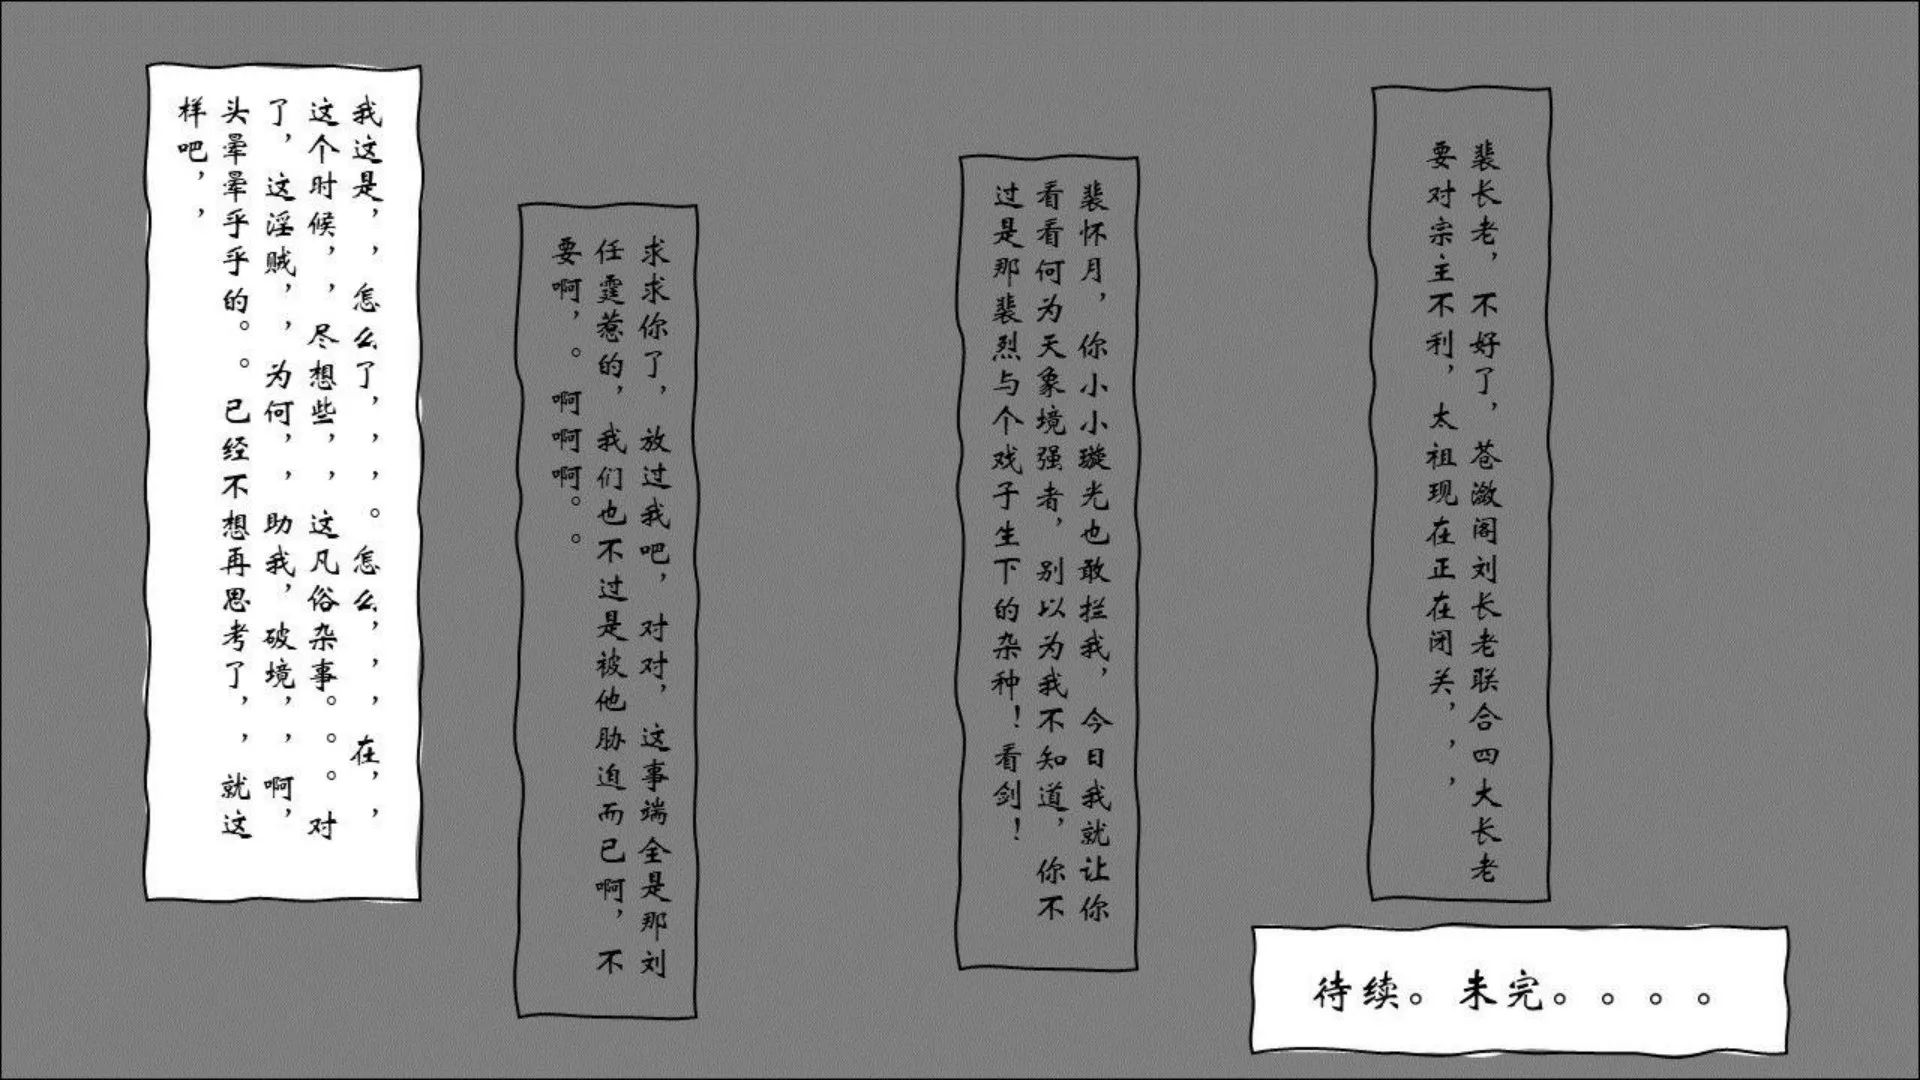 裴长老，不好了，苍澈阁刘长老联合四大长老
要对宗主不利，太祖现在正在闭关，，，
裴怀月，你小小璇光也敢拦我，今日我就让你
看看何为天象境强者，别以为我不知道，你不
过是那裴烈与个戏子生下的杂种！看剑！
求求你了，放过我吧，对对，这事端全是那刘
任霆惹的，我们也不过是被他胁迫而已啊，不
要啊，。啊啊啊。。
我这是，，怎么了，，，。怎么，，，在，，
这个时候，，尽想些，，这凡俗杂事。。。对
了，这淫贼，，为何，，助我，破境，，啊，
头晕晕乎乎的。。已经不想再思考了，，就这
样吧，，
待续。未完。。。。